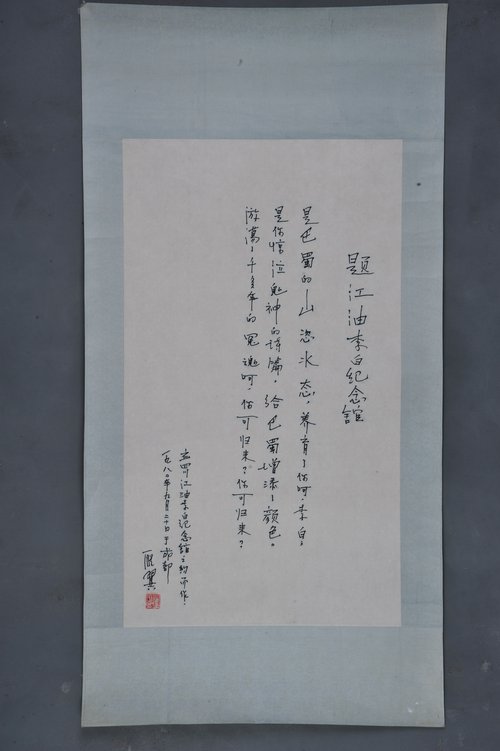 题江油李白纪念馆
是巴蜀的山姿水态，养育了你呵，李白，
是你惊泣鬼神的诗篇，给巴蜀增添了颜色。
游荡了千多年的冤魂呵，你可归来？你可归来？
应江油李白纪念馆之约而作，
一九八〇年九月二十日于成都